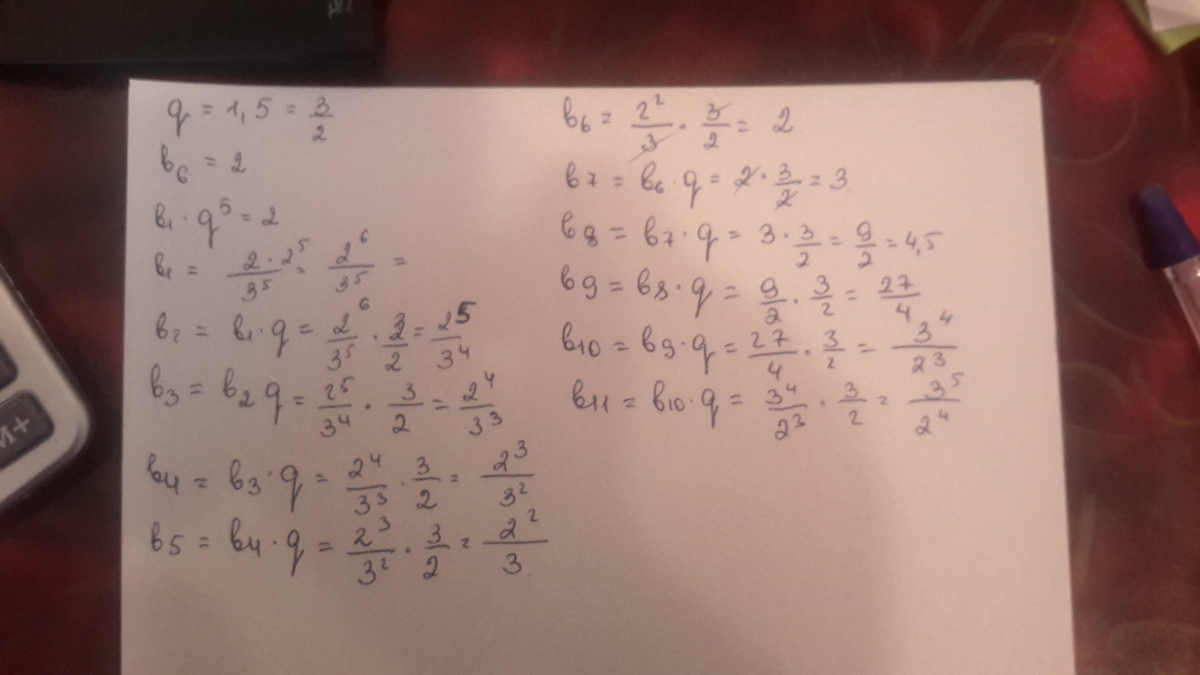 q = 1,5 = 3/2
b₆ = 2
b₁ · q⁵ = 2
b₁ = 2 · 2⁵/3⁵ = 2⁶/3⁵ =
b₂ = b₁ · q = 2⁶/3⁵ · 3/2 = 2⁵/3⁴
b₃ = b₂ q = 2⁵/3⁴ · 3/2 = 2⁴/3³
b₄ = b₃ · q = 2⁴/3³ · 3/2 = 2³/3²
b₅ = b₄ · q = 2³/3² · 3/2 = 2²/3
b₆ = 2²/3 · 3/2 = 2
b₇ = b₆ · q = 2 · 3/2 = 3
b₈ = b₇ · q = 3 · 3/2 = 9/2 = 4,5
b₉ = b₈ · q = 9/2 · 3/2 = 27/4
b₁₀ = b₉ · q = 27/4 · 3/2 = 3⁴/2³
b₁₁ = b₁₀ · q = 3⁴/2³ · 3/2 = 3⁵/2⁴
M+